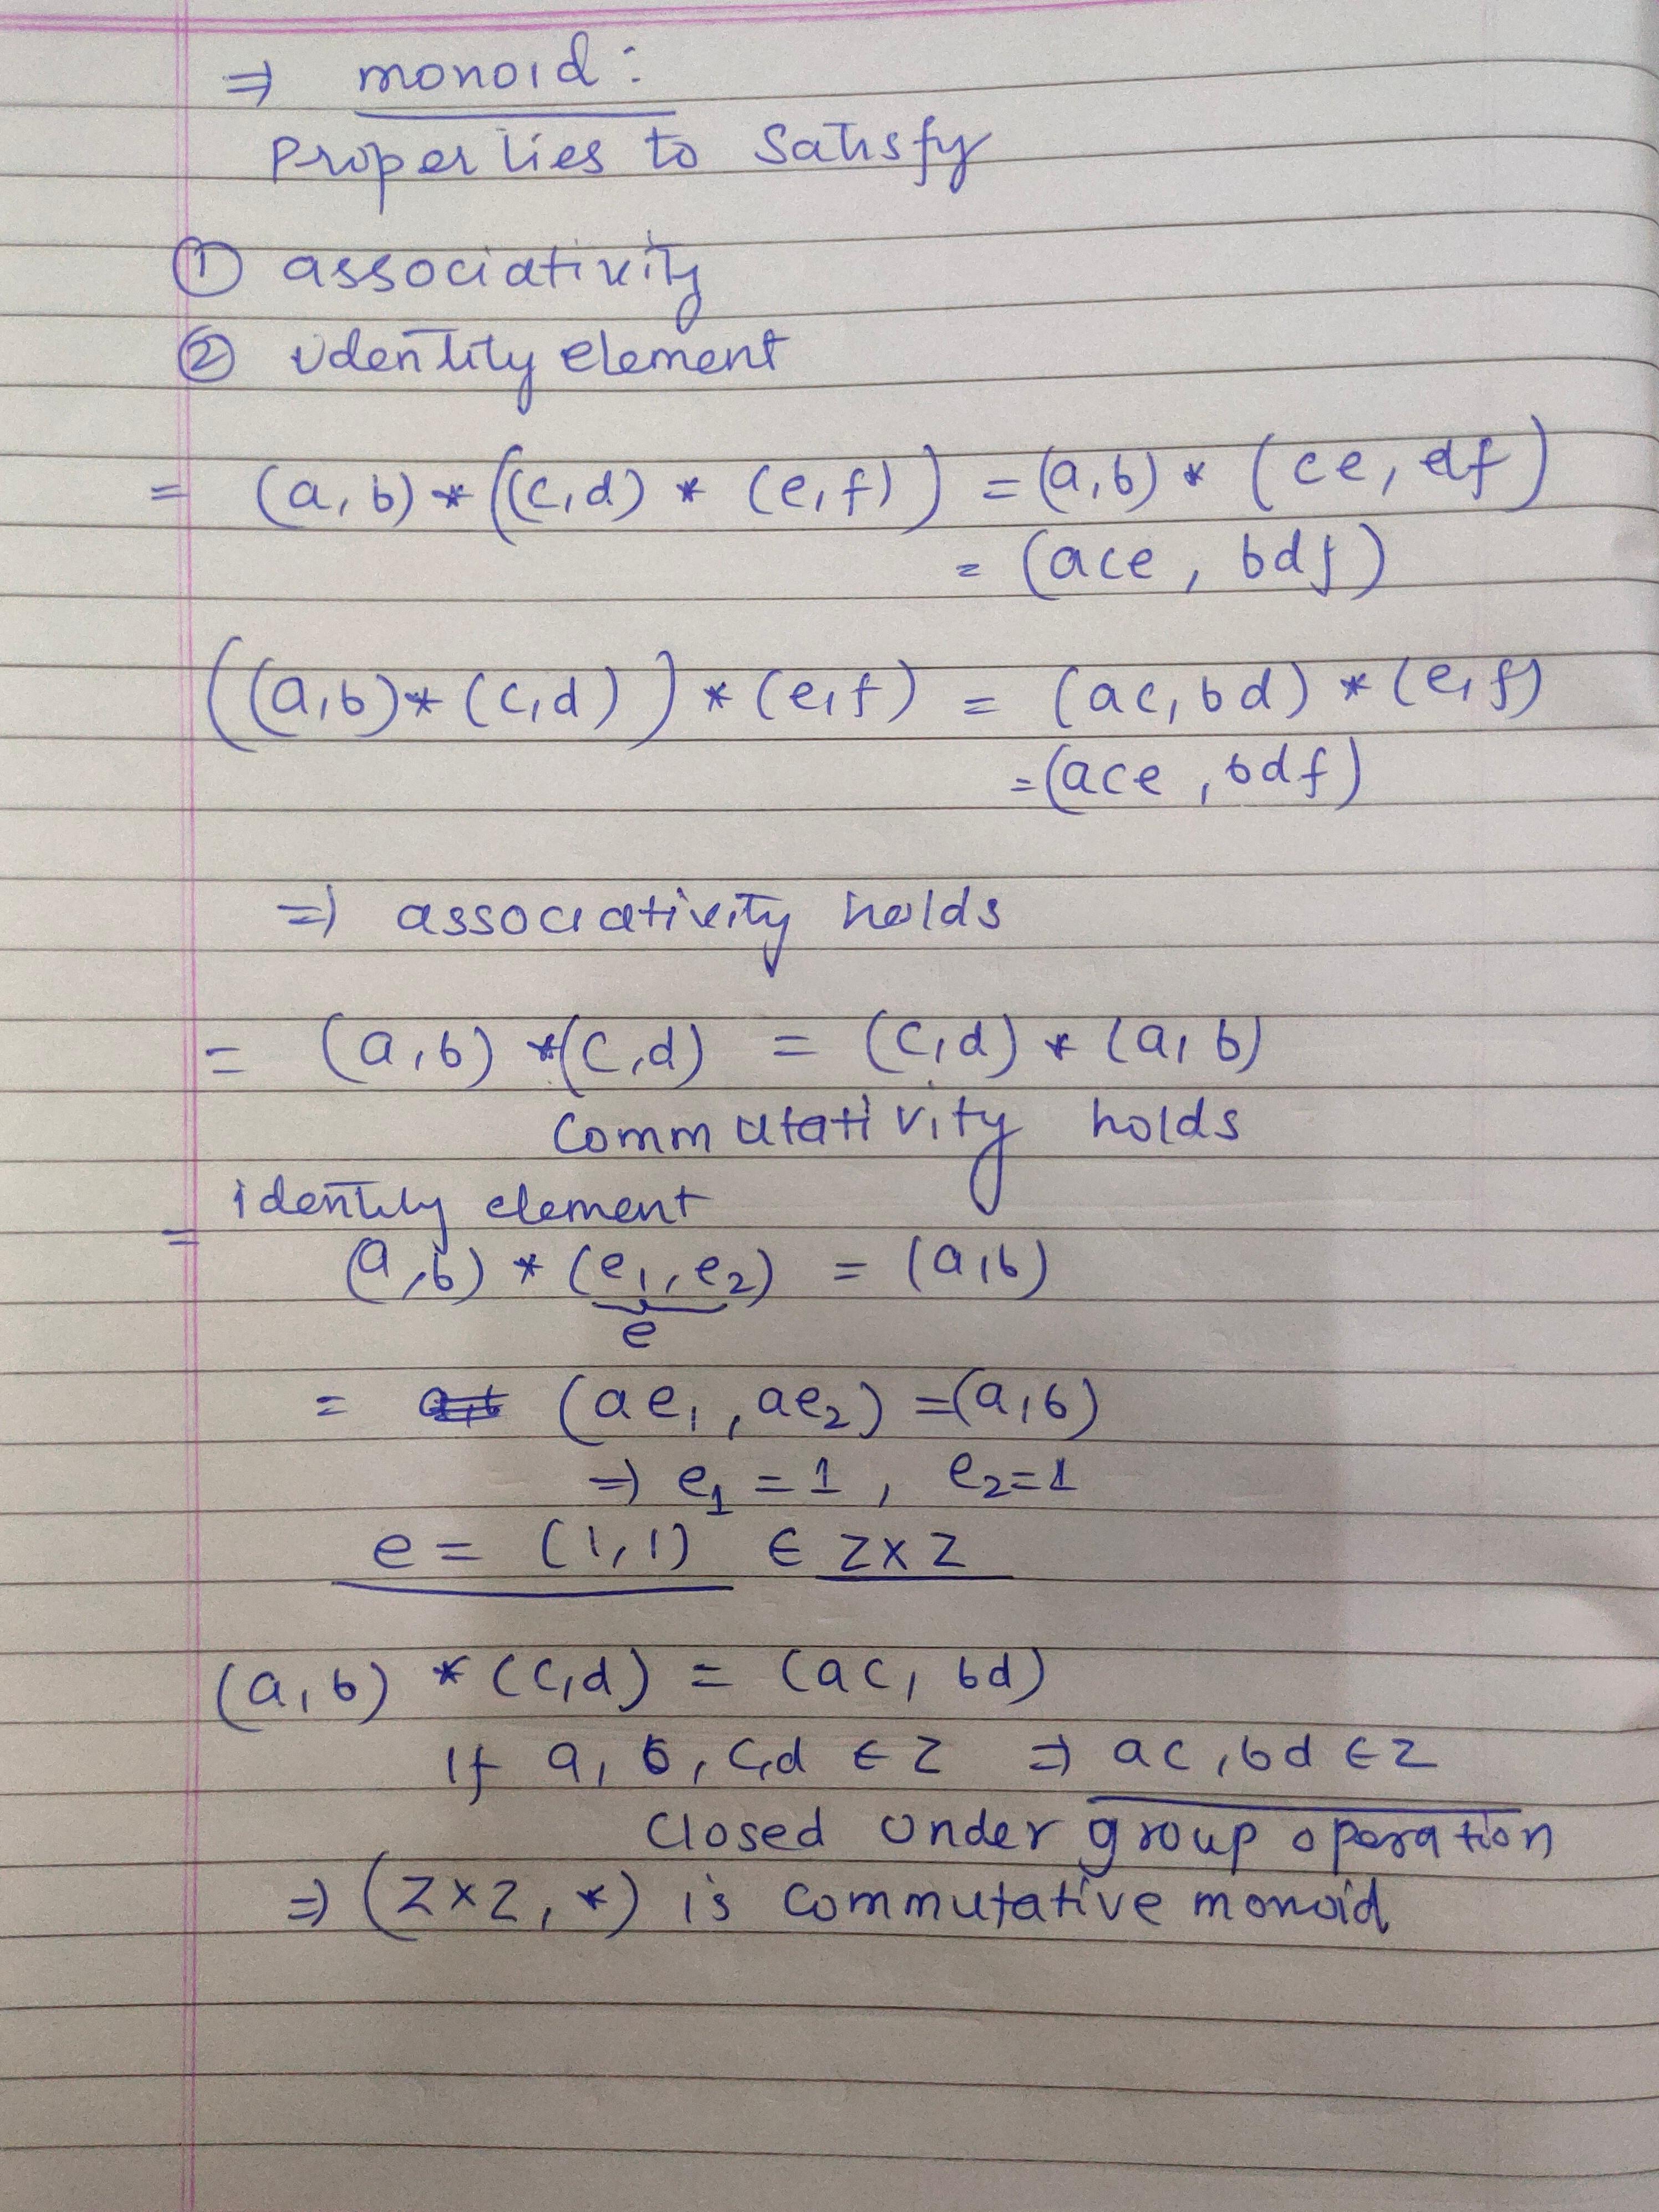 ⇒ monoid:
Properties to Satisfy
① associativity
② identity element
= (a,b)*((c,d) * (e,f)) = (a,b) * (ce, df)
= (ace, bdf)
((a,b)*(c,d))*(e,f) = (ac,bd)*(e,f)
=(ace,bdf)
⇒ associativity holds
= (a,b) *(c,d) = (c,d) * (a,b)
Commutativity holds
identity element
= (a,b) * (e₁,e₂) = (a,b)
e
= (ae₁, ae₂) =(a,b)
⇒ e₁ = 1, e₂=1
e = (1,1) ∈ Z×Z
(a,b) *(c,d) = (ac, bd)
If a, b, c,d ∈ Z ⇒ ac,bd ∈ Z
Closed under group operation
⇒ (Z×Z, *) is Commutative monoid